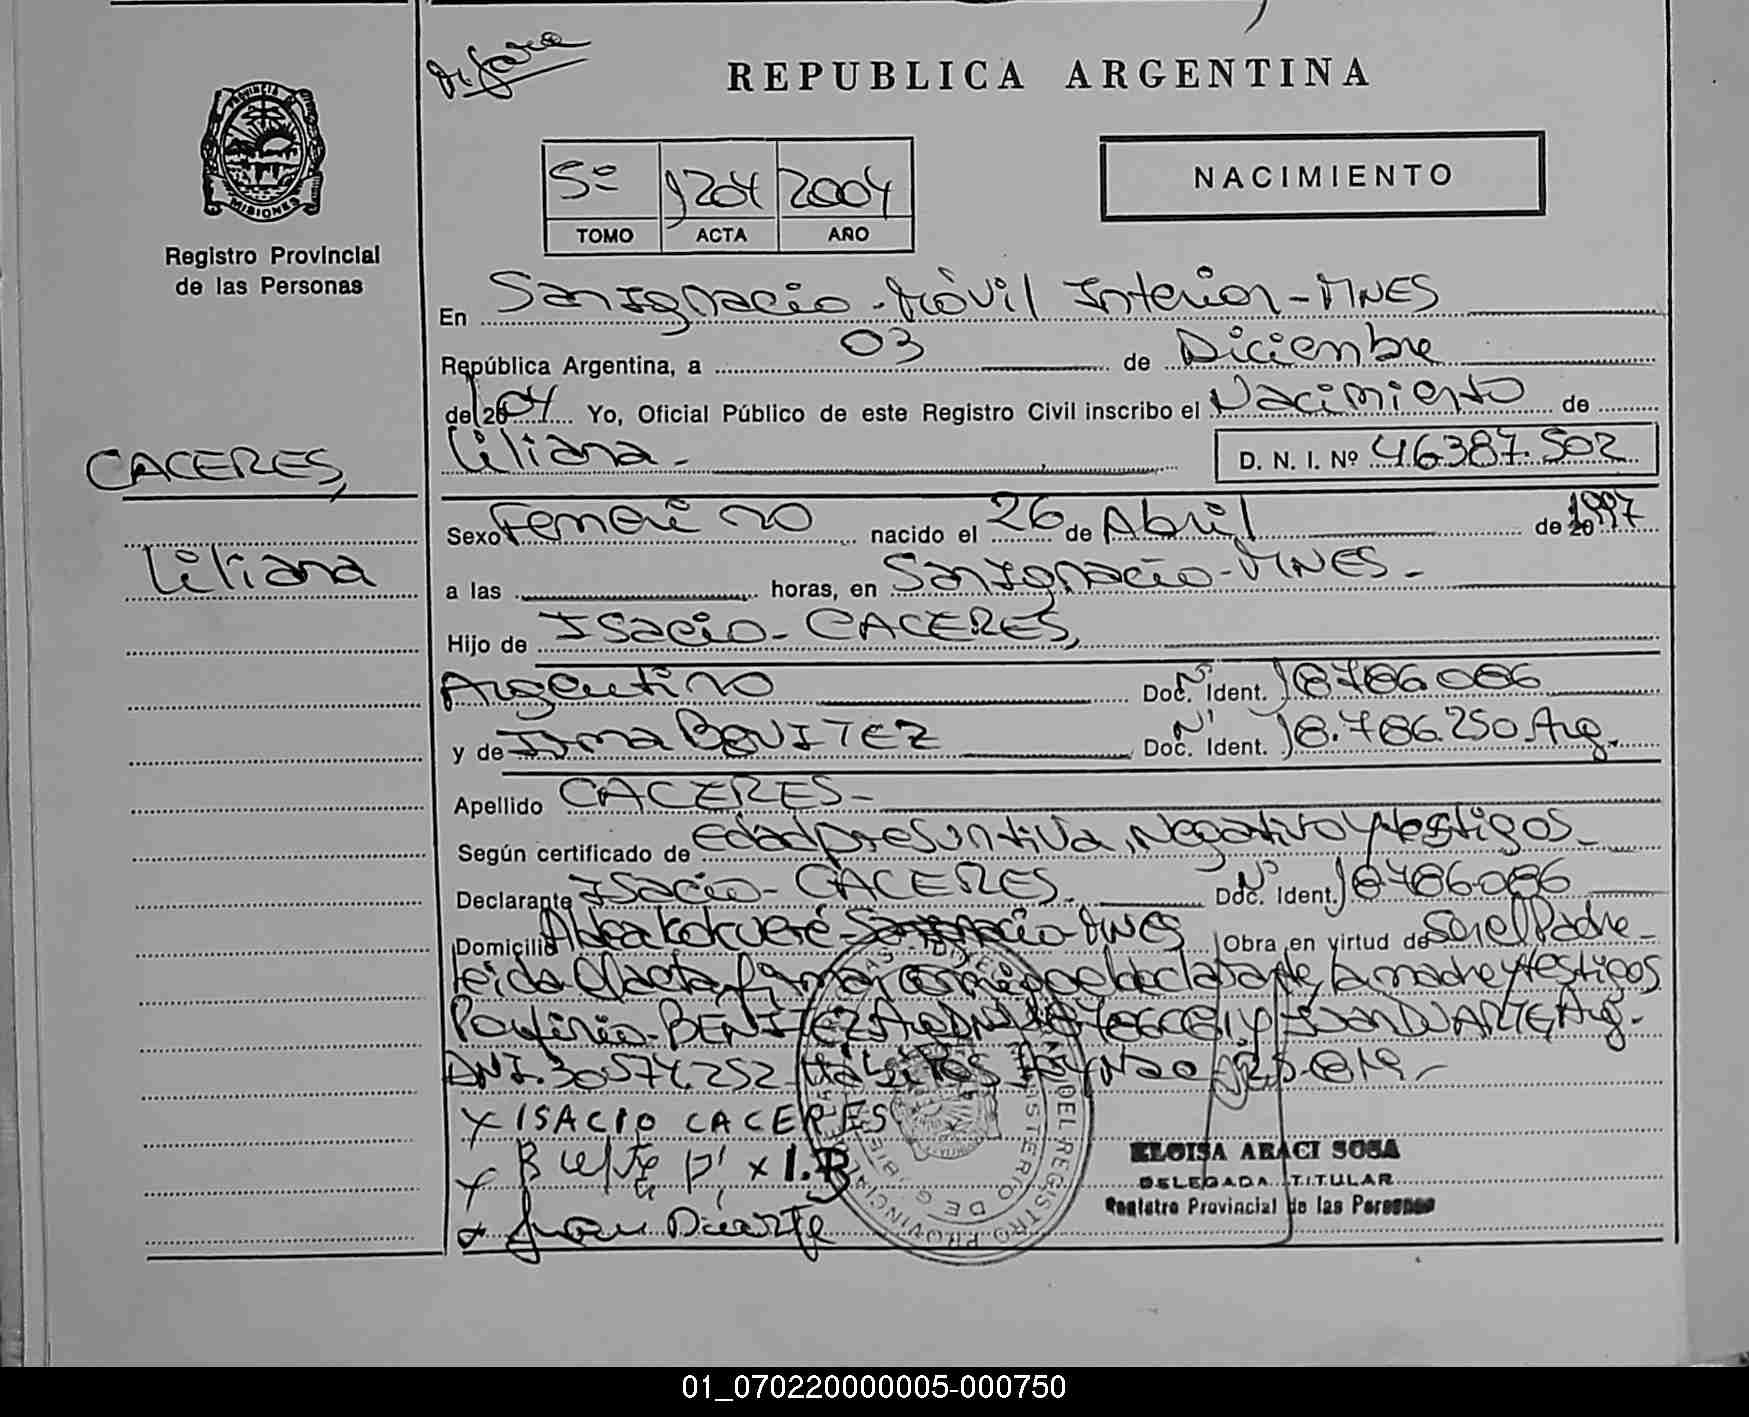 REPUBLICA ARGENTINA
PROVINCIA DE
MISIONES
Registro Provincial
de las Personas
5º 1204 2004
TOMO ACTA AÑO
NACIMIENTO
En San Ignacio - Móvil Interior - MNES
República Argentina, a 03 de Diciembre
del 2004 Yo, Oficial Público de este Registro Civil inscribo el Nacimiento de
Liliana - D. N. I. Nº 46387.502
CACERES,
Liliana
Sexo Femenino nacido el 26 de Abril de 1997
a las horas, en San Ignacio - MNES -
Hijo de Isacio - CACERES,
Argentino Doc. Nº Ident. 18786086
y de Irma BENITEZ Doc. Nº Ident. 18.786.250 Arg.
Apellido CACERES -
Según certificado de edad presuntiva, Negativo y testigos -
Declarante Isacio - CACERES Doc. Nº Ident. 18786086
Domicilio Aldea Kokueré - San Ignacio - MNES Obra en virtud de Ser el Padre -
leida el acta, firman conmigo el declarante, la madre y testigos
Porfirio - BENITEZ Arg DNI y Juan DUARTE, Arg -
DNI. 30574.252 -
x ISACIO CACERES
x I.B
x Juan Duarte
ELOISA ARACI SOSA
DELEGADA TITULAR
Registro Provincial de las Personas
01_070220000005-000750